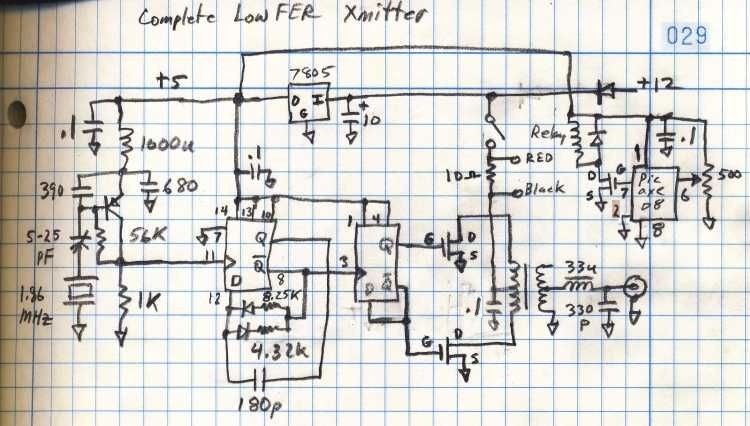 Complete LowFER Xmitter
029
+5
7805
O I
G
+12
+
10
.1
1000u
Relay
.1
RED
10Ω
Black
390
680
.1
D
G
S
7
1
Pic
axe
08
6
500
2
8
14
13
10
7
11
Q
Q
D
8
12
56K
5-25
PF
1.86
MHz
1K
8.25K
4.32K
180p
1
4
3
Q
D
Q
G
D
S
G
D
S
.1
33u
330
P